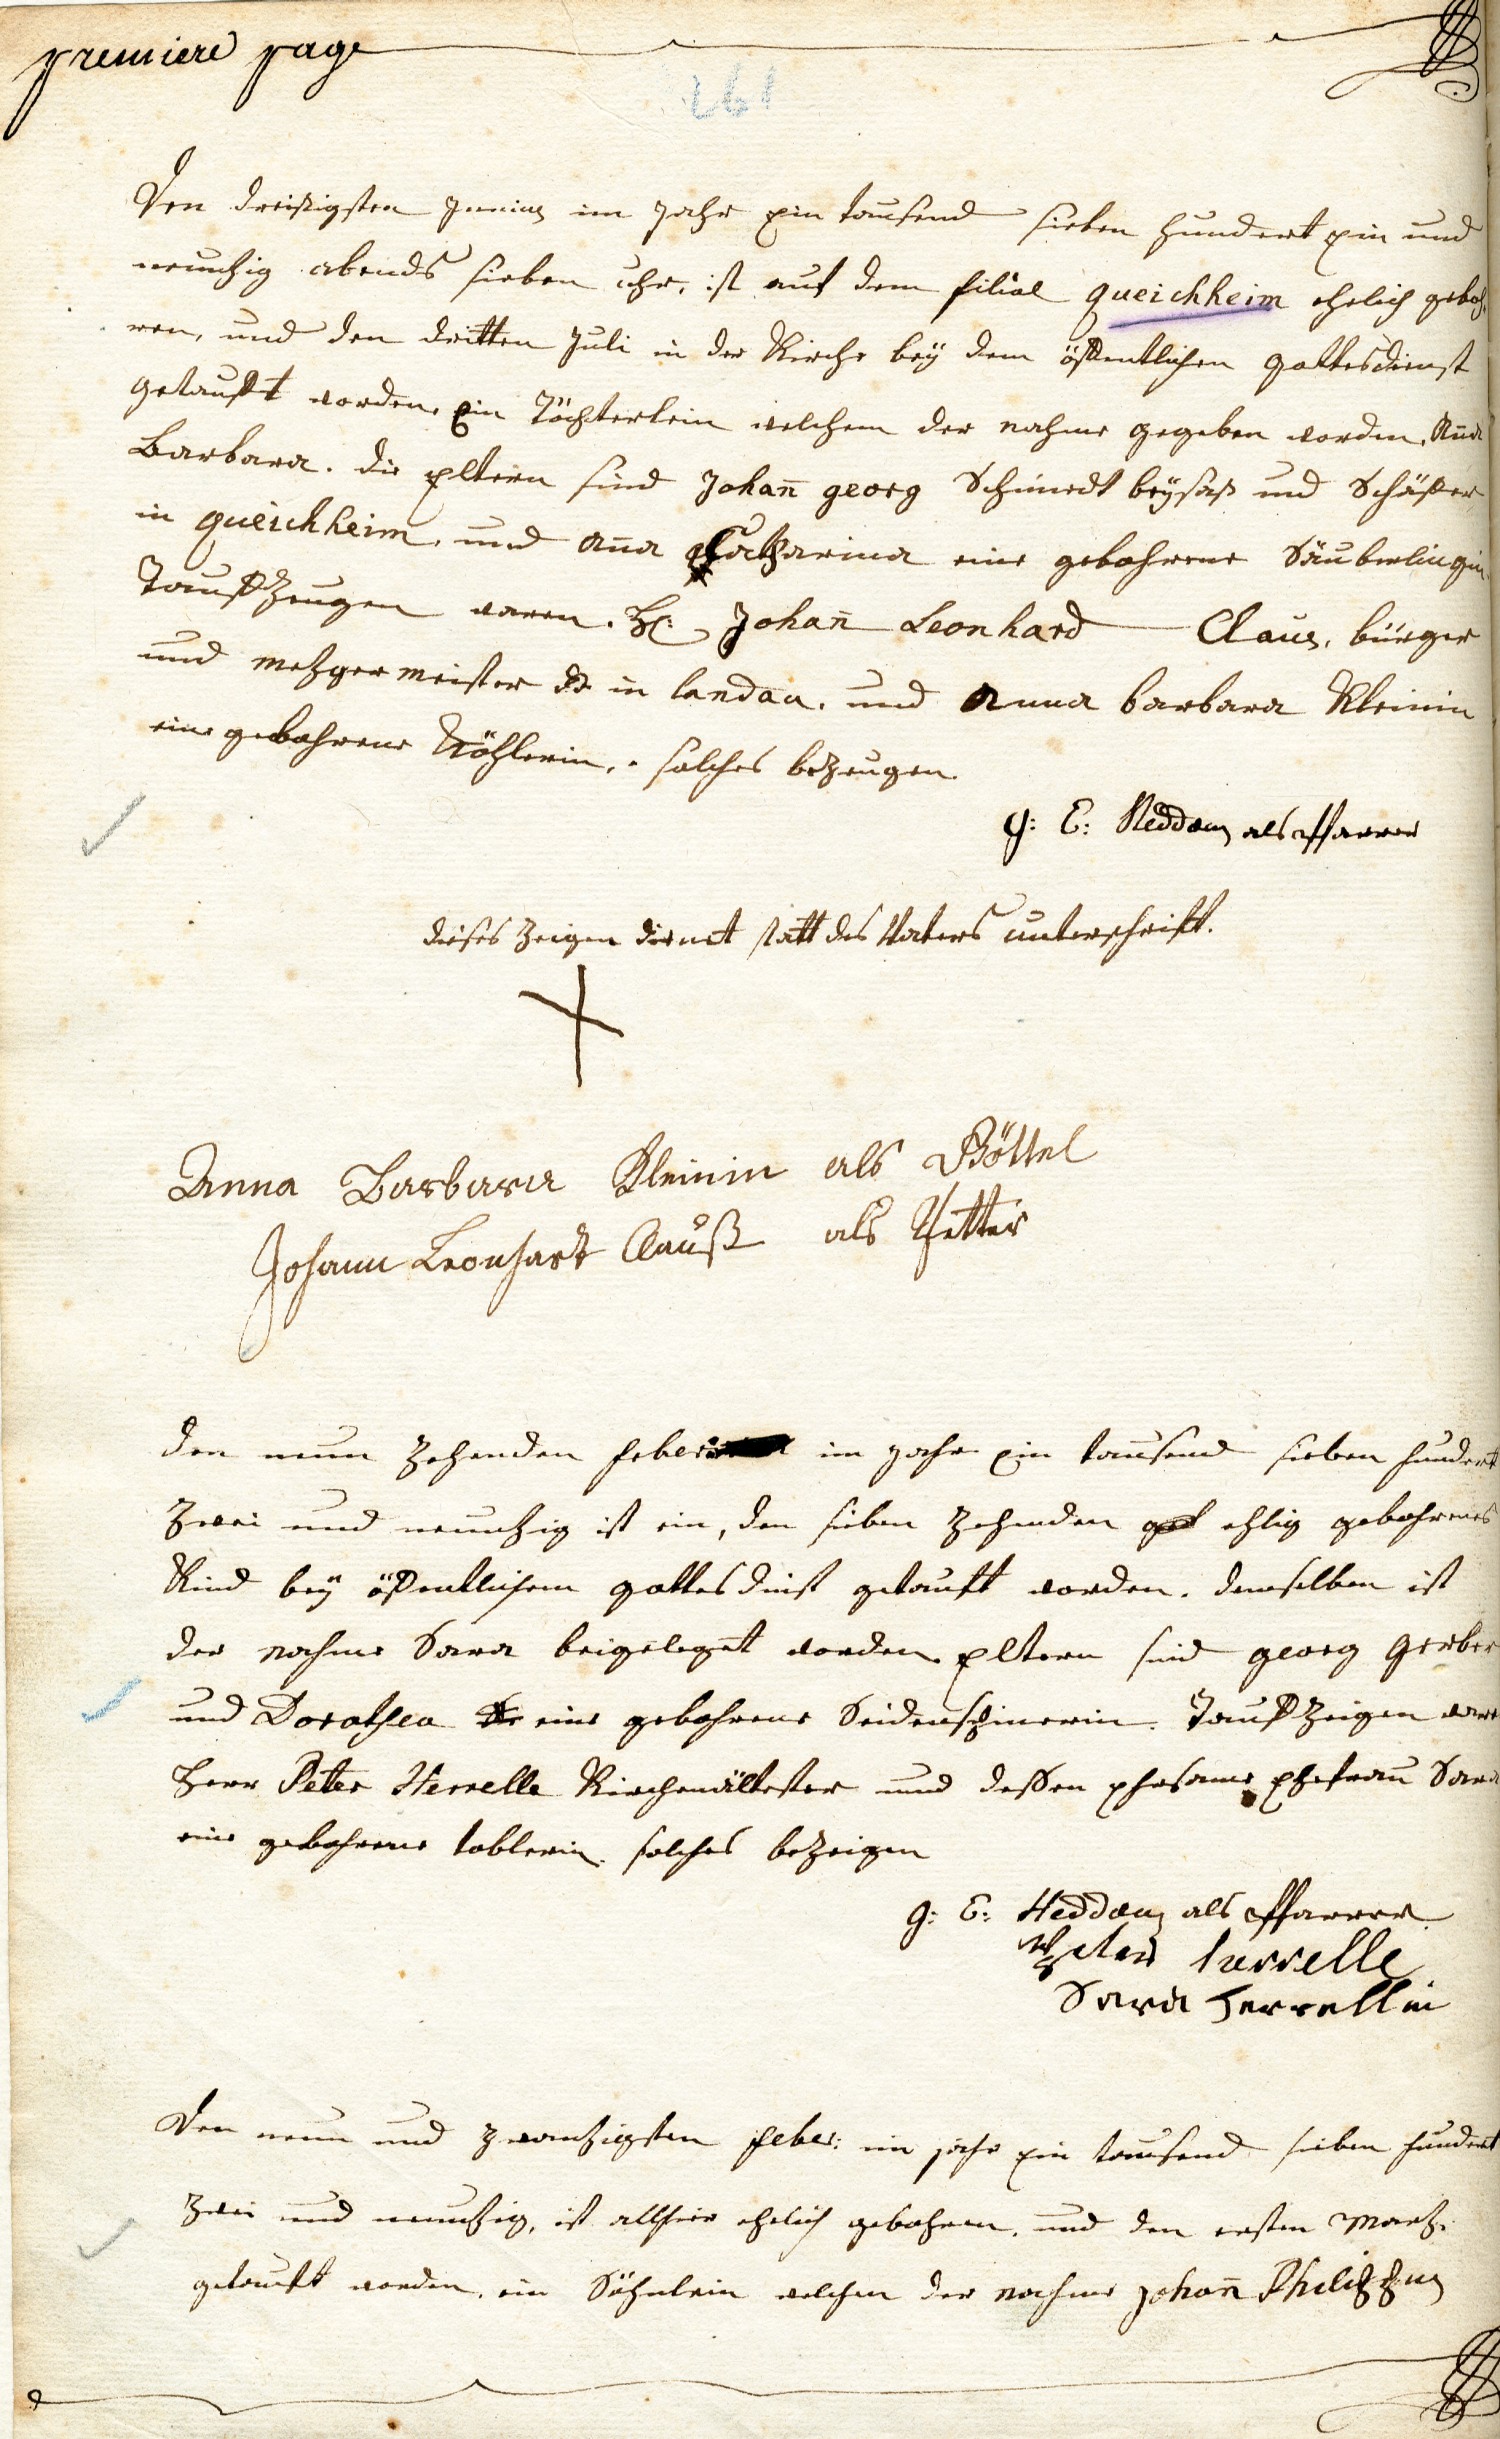 premiere page
1791
Den dreißigsten Junius im Jahr Ein tausend sieben hundert ein und
neunzig abends sieben Uhr, ist auf dem filial queichheim ehelich geboh-
ren, und den dritten Juli in der Kirche beÿ dem öffentlichen gottesdienst
getaufft worden, Ein Töchterlein welchem der nahme gegeben worden, Aña
Barbara. die Eltern sind Johañ georg Schmedt beÿsaß und Schäffer
in queichheim, und Aña Catharina eine gebohrene Säuberlingin.
Taufzeugen waren. H: Johañ Leonhard Claus, bürger
und metzgermeister in landau, und Anna barbara Kleinin
eine gebohrene Köhlerin, solches bezeugen
G: E: Heddæus als Pfarrer
dieses Zeigen dienet statt des Vaters unterschrift.
Anna Barbara Kleinin als Göttel
Johann Leonhart Clauß als Petter
den neun zehenden feber im Jahr Ein tausend sieben hundert
zwei und neunzig ist ein, den sieben zehenden ehlig gebohrenes
Kind beÿ öffentlichem gottesdinst getauft worden. demselben ist
der nahme Sara beigelegt worden Eltern sind georg Gerber
und Dorothea eine gebohrene Seidenspinerin. Taufzeigen ware
Herr Peter Herrelle Kirchenältester und dessen Ehrsame Ehefrau Sara
eine gebohrene toblerin. solches bezeigen
G: E: Heddæus als Pfarrer
Peter herrelle
Sara herrellin
Den neun und zwanzigsten feber: im jahr Ein tausend sieben hundert
zwei und neunzig, ist allhier ehelich gebohren, und den ersten Martz.
getauft worden, ein Söhnlein welchen der nahme Johañ Philippus